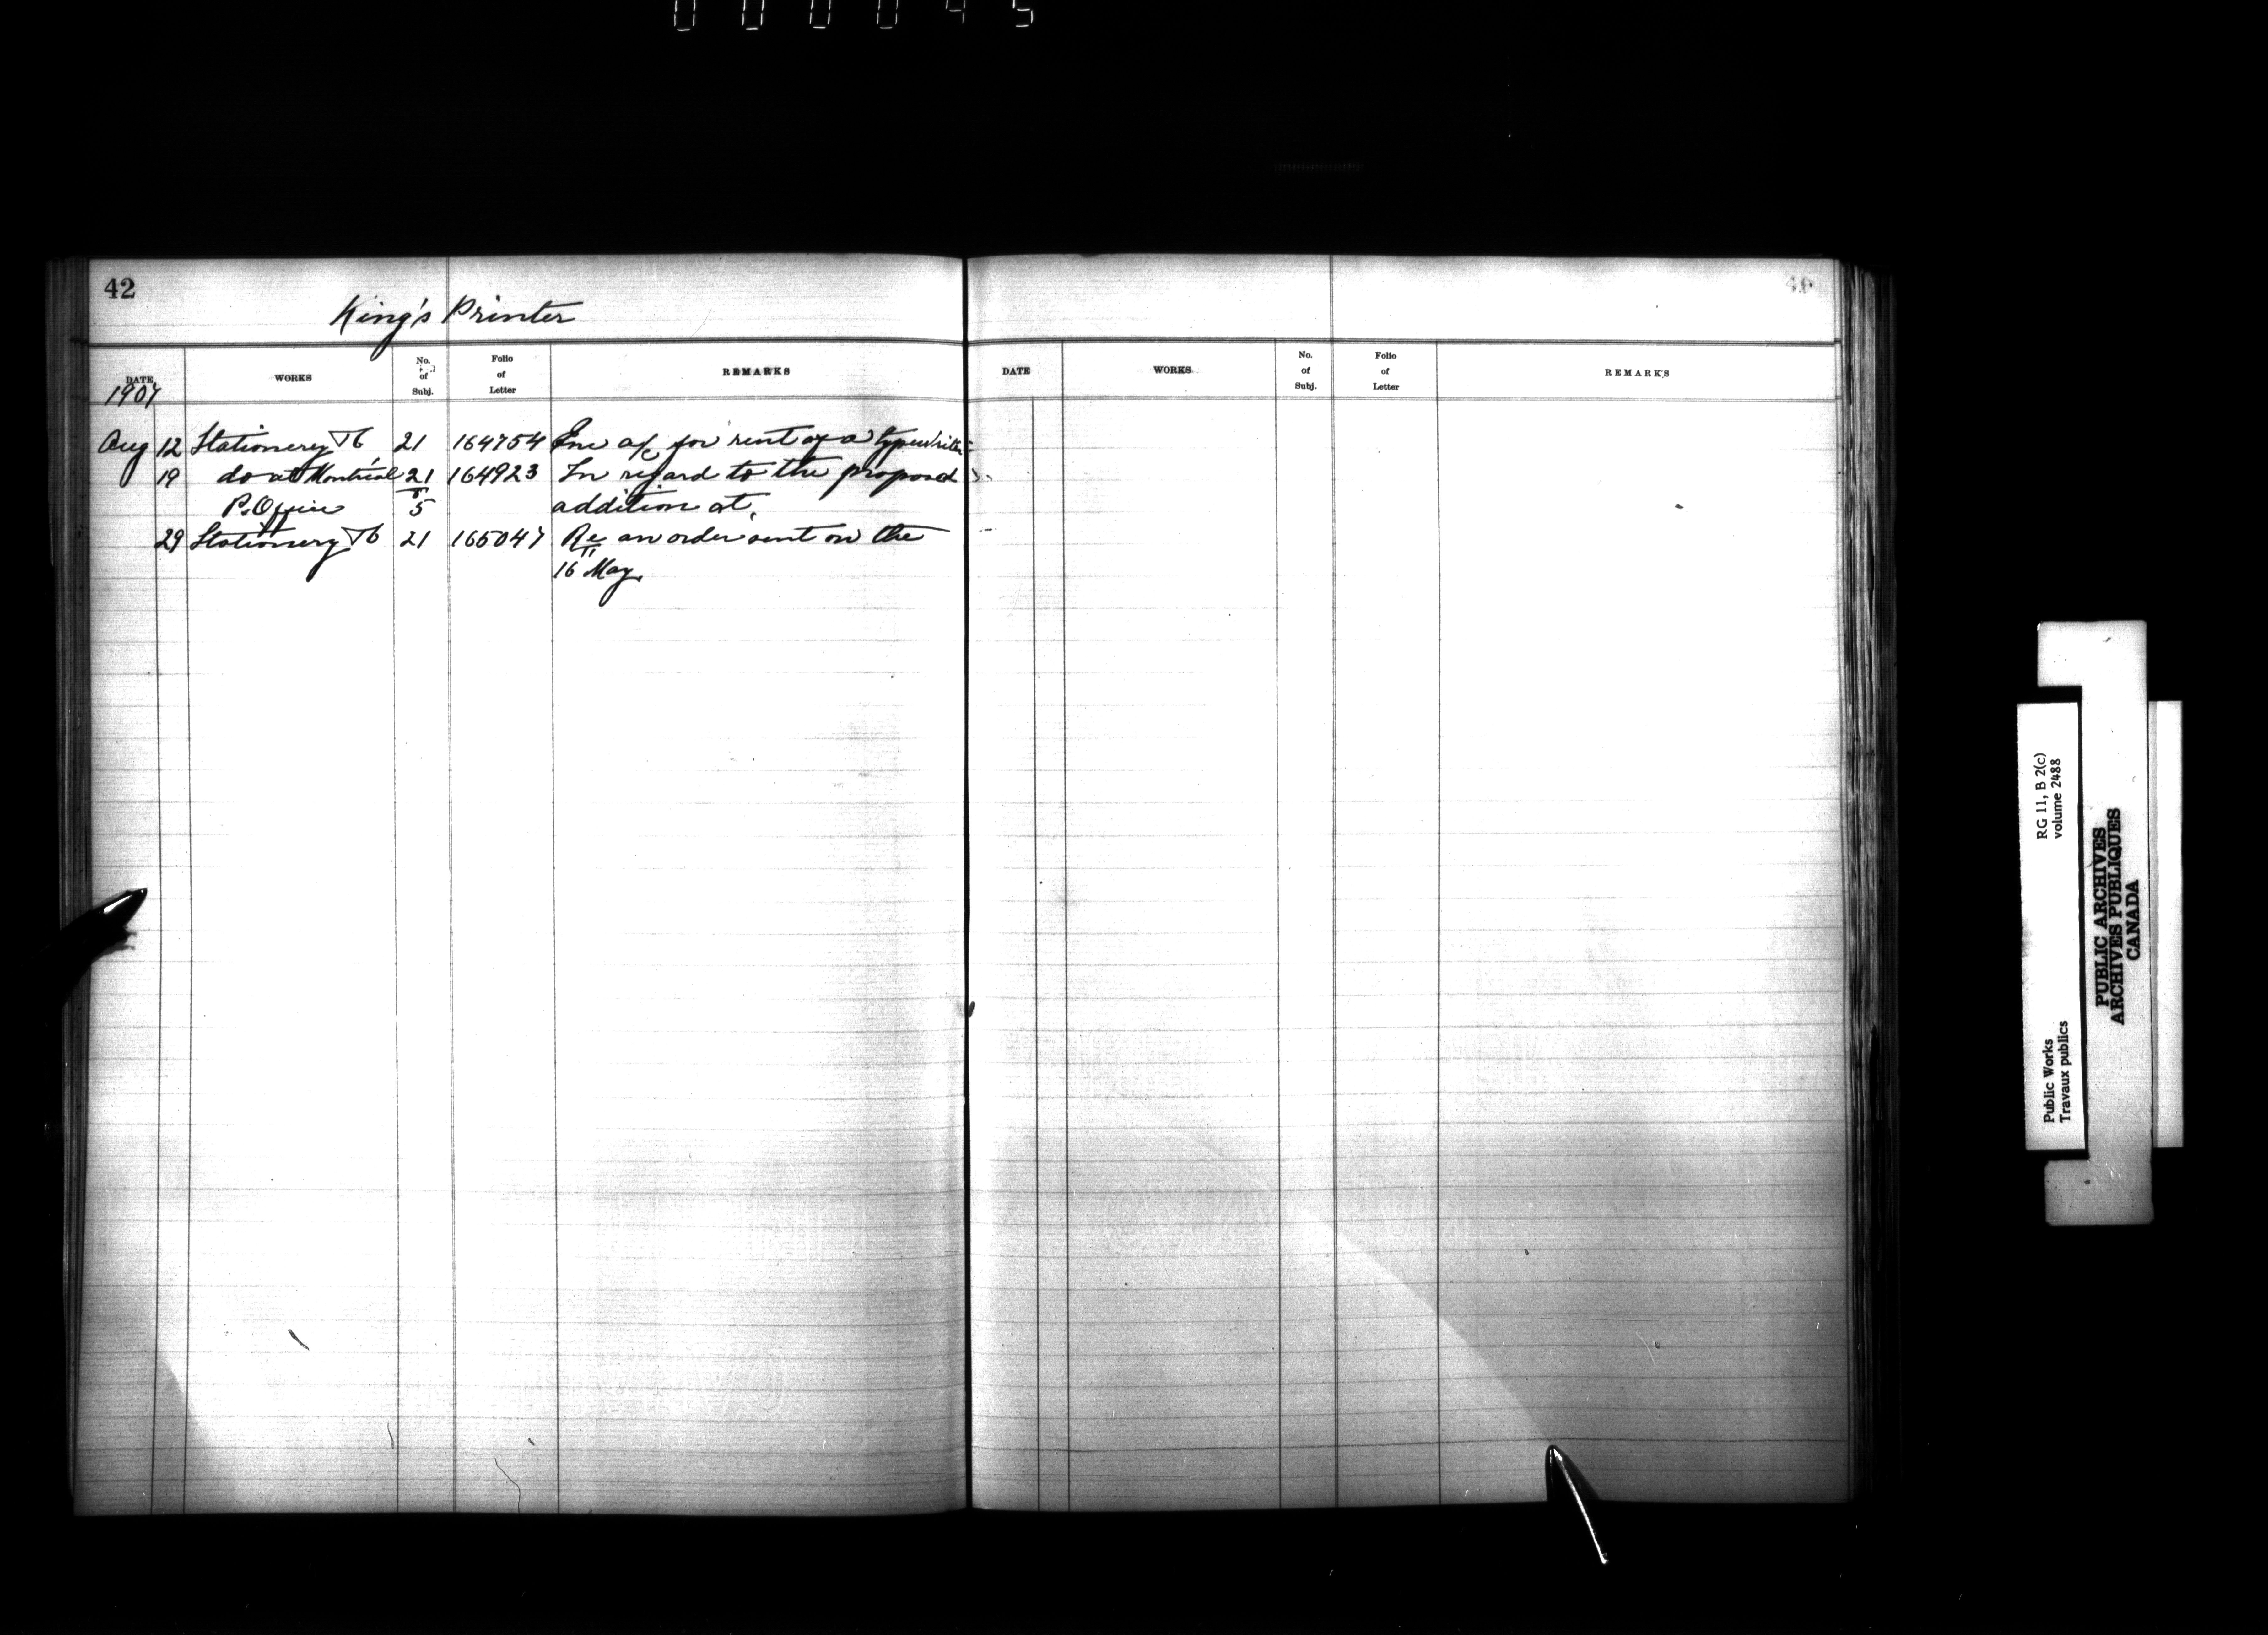 000045
42
King's Printer
DATE WORKS No. of Subj. Folio of Letter REMARKS
1907
Aug 12 Stationery 21 164754 Enc a/c for rent of a typewriter
19 do at Montreal 21 164923 In regard to the proposed
P. Office 5 addition at.
29 Stationery 21 165047 Re an order sent on the
16 May.
DATE WORKS No. of Subj. Folio of Letter REMARKS
RG 11, B 2(c)
volume 2488
Public Works
Travaux publics
PUBLIC ARCHIVES
ARCHIVES PUBLIQUES
CANADA